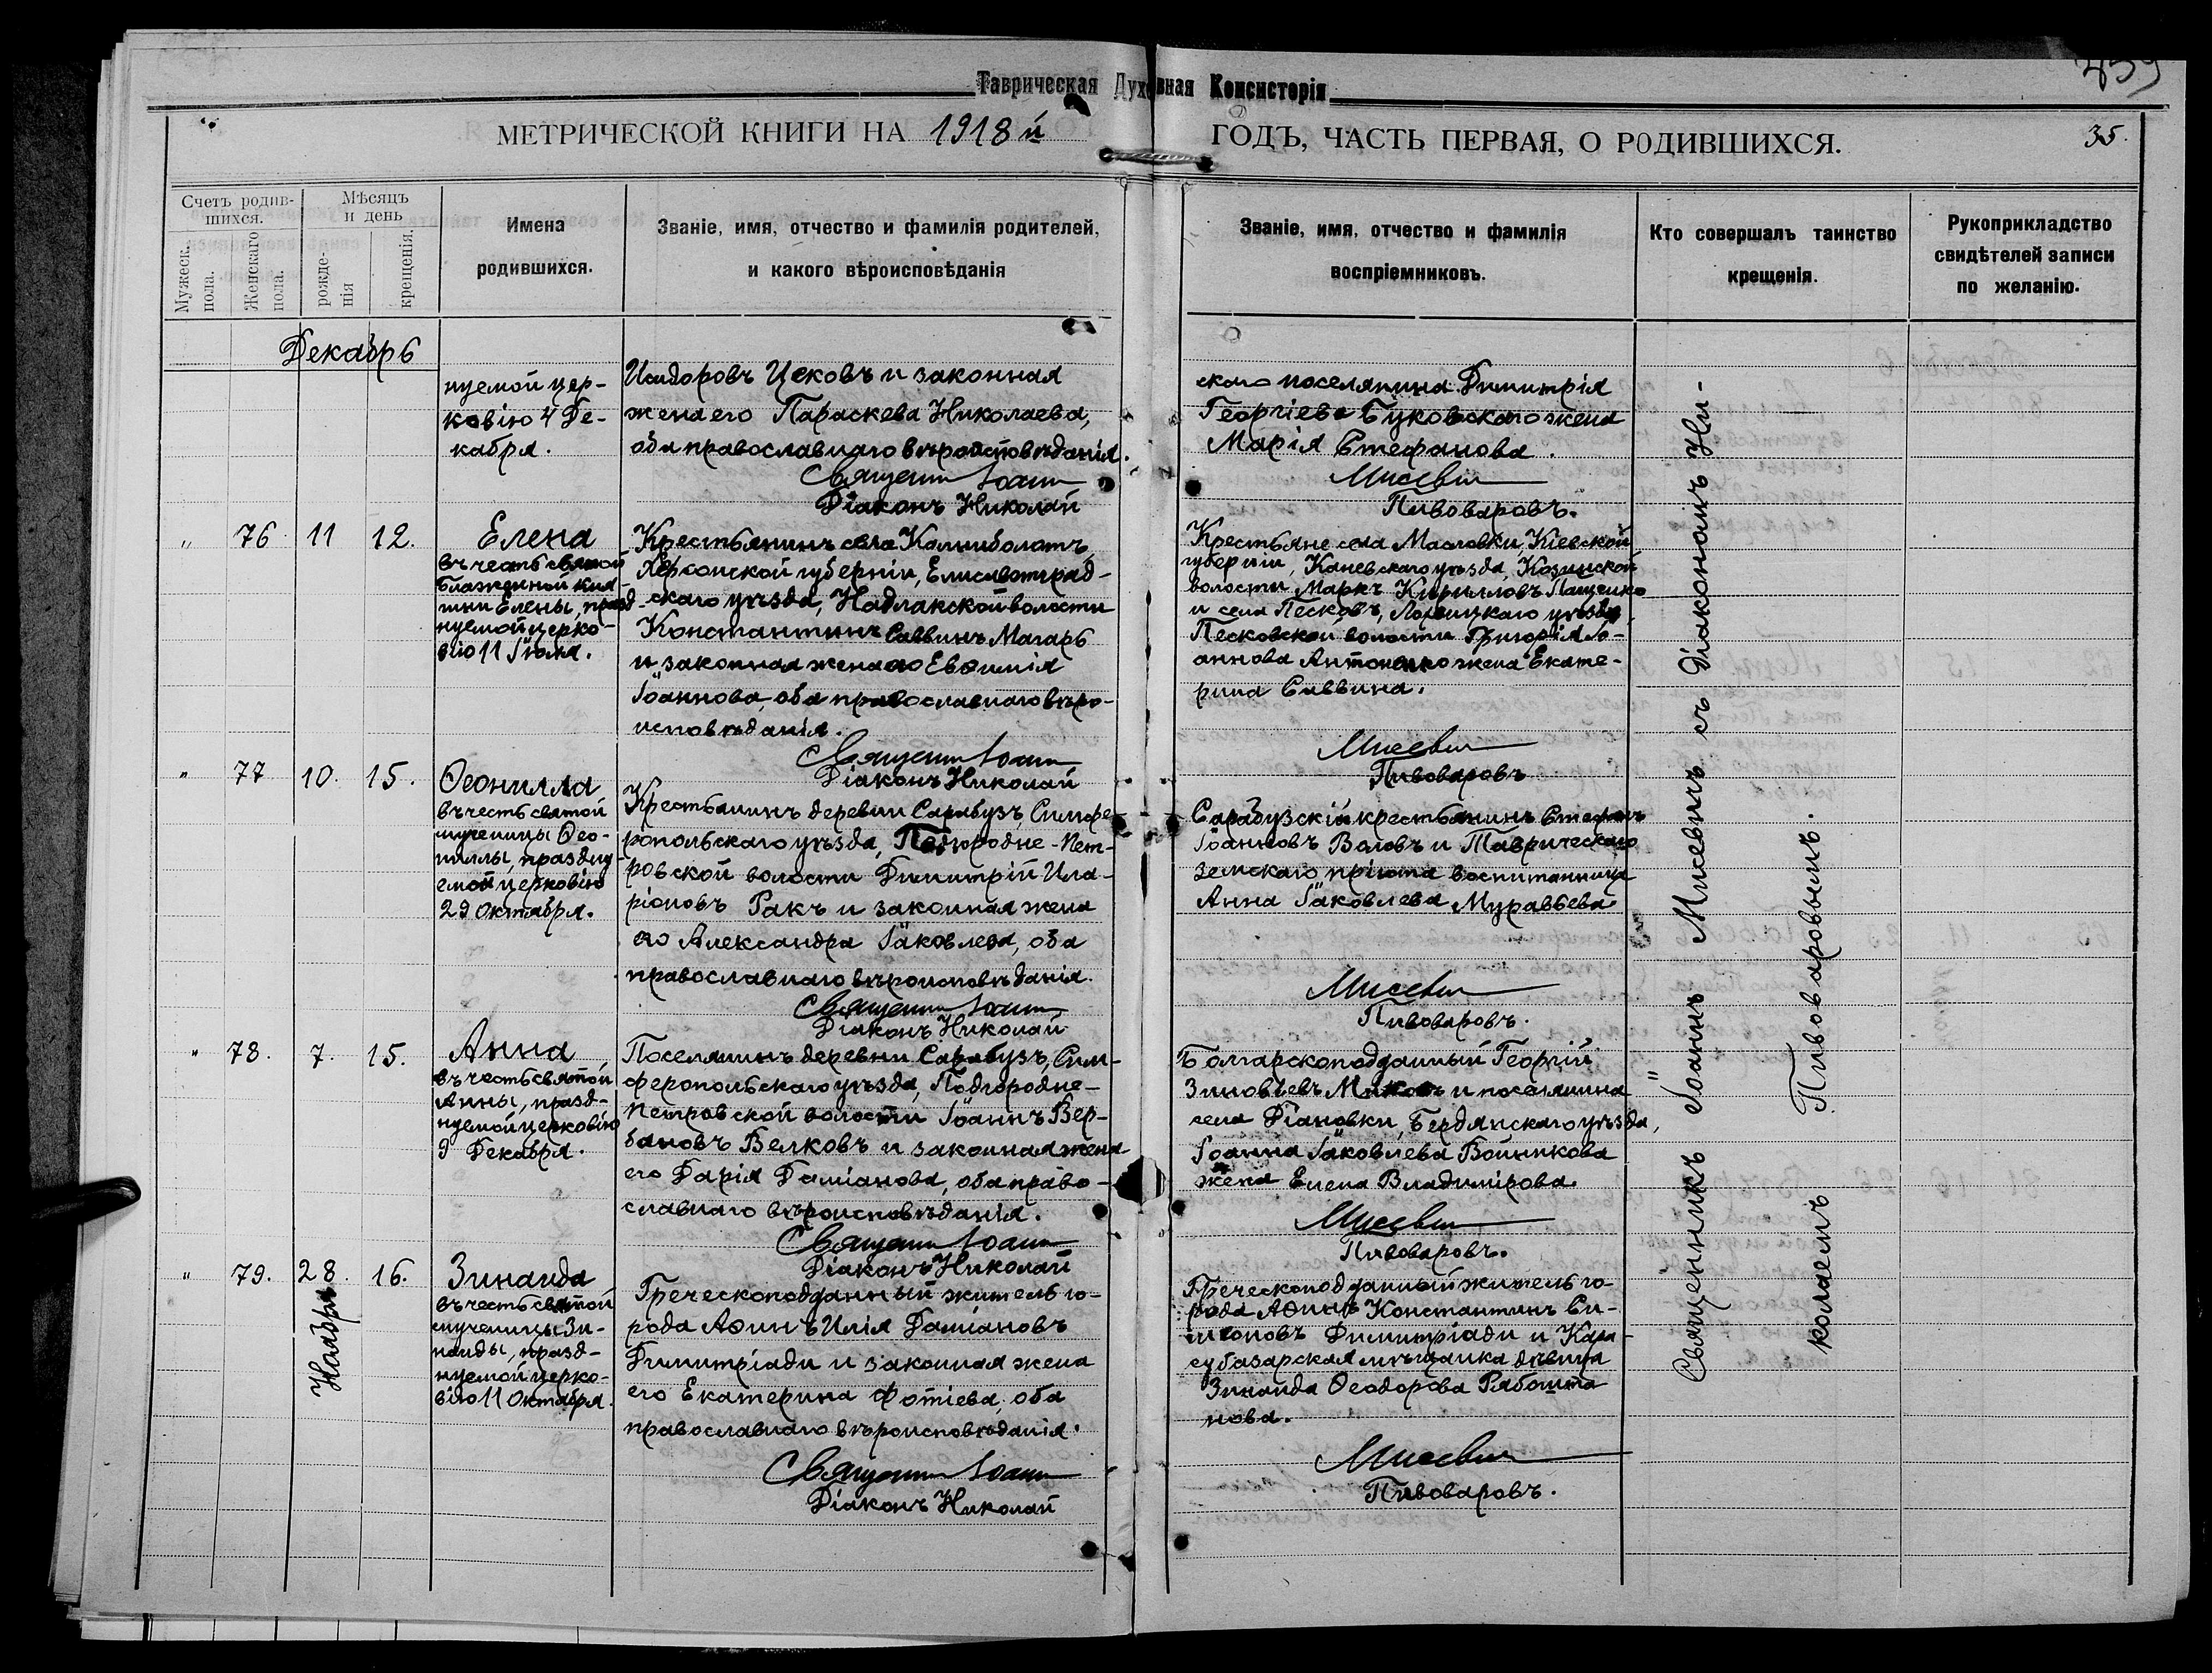 Таврическая Духовная Консисторія
МЕТРИЧЕСКОЙ КНИГИ НА 1918 й
ГОДЪ, ЧАСТЬ ПЕРВАЯ, О РОДИВШИХСЯ.
35.
Счетъ родив-
шихся.
Мужеск.
пола.
Женскаго
пола.
Мѣсяцъ
и день
рожде-
нія
крещенія.
Имена
родившихся.
Званіе, имя, отчество и фамилія родителей,
и какого вѣроисповѣданія
Званіе, имя, отчество и фамилія
воспріемниковъ.
Кто совершалъ таинство
крещенія.
Рукоприкладство
свидѣтелей записи
по желанію.
Декабрь
нуемой цер-
ковію 4 Де-
кабря.
Исидоровъ Цековъ и законная
жена его Параскева Николаева,
оба православнаго вѣроисповѣданія.
Священни Іоанн
Діаконъ Николай
скаго поселянина Димитрія
Георгіева Буковскаго жена
Марія Стефанова.
Мисевич
Пивоваровъ.
„ 76. 11 12.
Елена
въ честь святой
блаженной кня-
гини Елены, празд-
нуемой церко-
вію 11 Іюля.
Крестьянинъ села Калниболотъ,
Херсонской губерніи, Елисаветград-
скаго уѣзда, Надлакской волости
Константинъ Саввинъ Магарь
и законная жена его Евѳимія
Іоаннова, оба православнаго вѣро-
исповѣданія.
Священни Іоанн
Діаконъ Николай
Крестьяне села Масловки, Кіевской
губерніи, Каневскаго уѣзда, Козинской
волости Маркъ Кирилловъ Пащенко
и села Песковъ, Лохвицкаго уѣзда,
Песковской волости Григорія Іо-
аннова Антоненко жена Екате-
рина Саввина.
Мисевич
Пивоваровъ
„ 77 10. 15.
Ѳеонилла
въ честь святой
мученицы Ѳео-
ниллы, праздну-
емой церковію
29 Октября.
Крестьянинъ деревни Сарабузъ, Симфе-
ропольскаго уѣзда, Подгородне-Пет-
ровской волости Димитрій Ила-
ріоновъ Ракъ и законная жена
его Александра Іаковлева, оба
православнаго вѣроисповѣданія.
Священни Іоанн
Діаконъ Николай
Сарабузскій крестьянинъ Стефанъ
Іоанновъ Валовъ и Таврическаго
земскаго пріюта воспитанница
Анна Іаковлева Муравьева.
Мисевич
Пивоваровъ.
„ 78. 7. 15.
Анна
въ честь святой
Анны, празд-
нуемой церковію
9 Декабря.
Поселянинъ деревни Сарабузъ, Сим-
феропольскаго уѣзда, Подгородне-
Петровской волости Іоаннъ Вер-
бановъ Велковъ и законная жена
его Дарія Даміанова, оба право-
славнаго вѣроисповѣданія.
Священни Іоанн
Діаконъ Николай
Болгарскоподданный Георгій
Зиновьевъ и поселянина
села Діановки, Бердянскаго уѣзда,
Іоанна Іаковлева Войникова
жена Елена Владимірова.
Мисевич
Пивоваровъ.
„ 79. 28. 16.
Ноября
Зинаида
въ честь святой
мученицы Зи-
наиды, празд-
нуемой церко-
вію 11 Октября.
Греческоподданный житель го-
рода Аѳинъ Илія Даміановъ
Димитріади и законная жена
его Екатерина Фотіева, оба
православнаго вѣроисповѣданія.
Священни Іоанн
Діаконъ Николай
Греческоподданный житель го-
рода Аѳинъ Константинъ Си-
меоновъ Димитріади и Кара-
субазарская мѣщанка дѣвица
Зинаида Ѳеодорова Рябошта
нова.
Мисевич
Пивоваровъ.
Священникъ Іоаннъ Мисевичъ съ Діакономъ Ни-
колаемъ Пивоваровымъ.